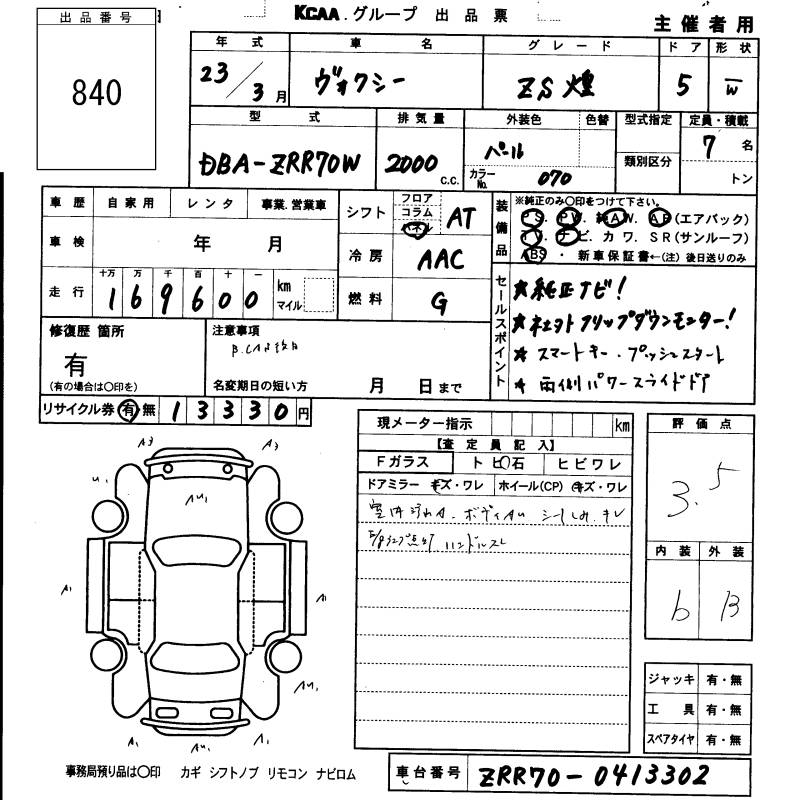 KCAA グループ 出品票
主催者用
出品番号
840
年式 車名 グレード ドア 形状
23/3月 ヴォクシー ZS煌 5 W
型式 排気量 外装色 色替 型式指定 定員・積載
DBA-ZRR70W 2000 c.c. パール 7名
カラーNo. 070 類別区分 トン
車歴 自家用 レンタ 事業.営業車
車検 年 月
走行 十万 万 千 百 十 一
169600 km マイル
シフト フロア コラム パネル AT
冷房 AAC
燃料 G
装備品 ※純正のみ〇印をつけて下さい。
PS. PW. 純AW. AB(エアバック)
TV. ナビ. カワ. SR(サンルーフ)
ABS ・ 新車保証書←(注) 後日送りのみ
セールスポイント
★純正ナビ!
★社外フリップダウンモニター!
★スマートキー.プッシュスタート
★両側パワースライドドア
修復歴 箇所
有
(有の場合は〇印を)
注意事項
名変期日の短い方 月 日まで
リサイクル券 有 無 13330円
現メーター指示 km
【査定員記入】
Fガラス トビ石 ヒビワレ
ドアミラー キズ・ワレ ホイール(CP) キズ・ワレ
ボディAU
ハンドルスレ
評価点
3.5
内装 外装
b B
A3 A3
U1
AU1
A1 A1
AU1
A1 AU1 A1
ジャッキ 有・無
工具 有・無
スペアタイヤ 有・無
事務局預り品は〇印 カギ シフトノブ リモコン ナビロム
車台番号 ZRR70-0413302